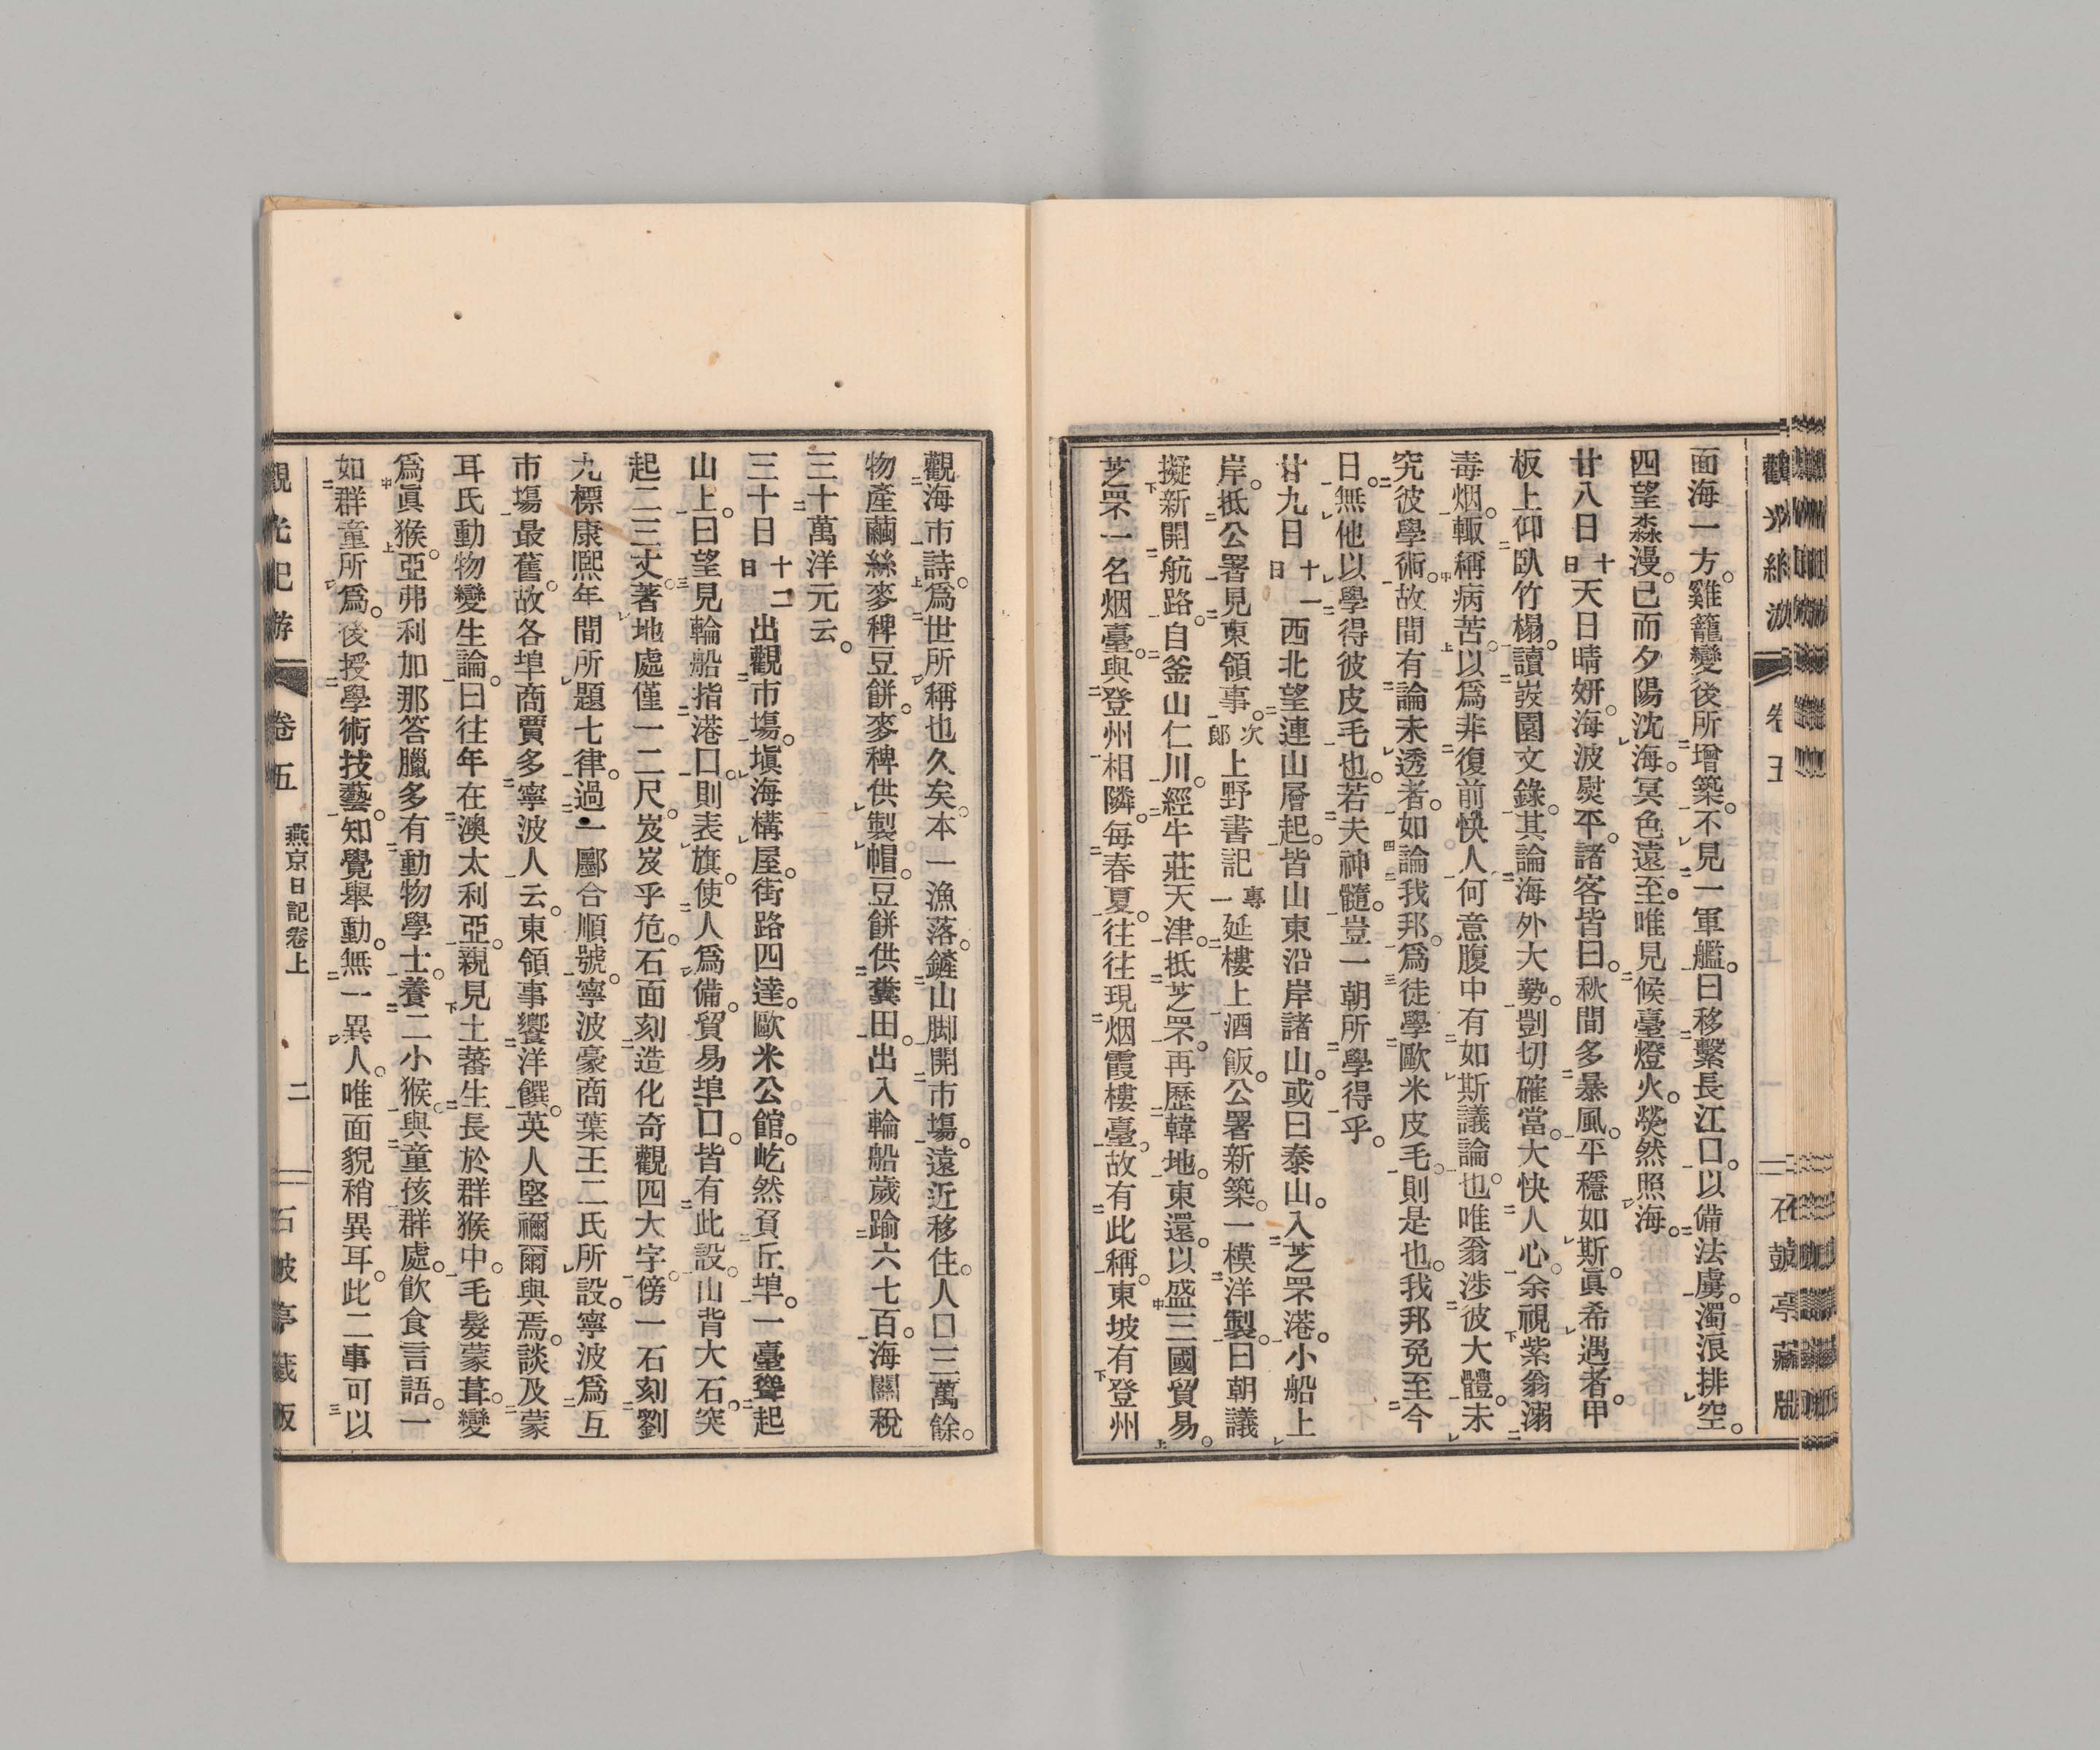 面海一方。雞籠變後所增築。不見一軍艦。曰移繫長江口。以備法虜。濁浪排空。
四望淼漫。已而夕陽沈海。冥色遠至。唯見候臺燈火。熒然照海。
廿八日十日天日晴妍。海波熨平。諸客皆曰。秋間多暴風。平穩如斯。眞希遇者。甲
板上仰臥竹榻。讀弢園文錄。其論海外大勢。剴切確當。大快人心。余視紫翁溺
毒烟。輙稱病苦。以爲非復前快人。何意腹中有如斯議論也。唯翁涉彼大體。未
究彼學術。故間有論未透者。如論我邦。爲徒學歐米皮毛。則是也。我邦免至今
日。無他以學得彼皮毛也。若夫神髓。豈一朝所學得乎。
廿九日十一日西北望連山層起。皆山東沿岸諸山。或曰泰山。入芝罘港。小船上
岸。抵公署見東領事。次郎上野書記專一延樓上酒飯。公署新築。一模洋製。曰朝議
擬新開航路。自釜山仁川。經牛莊天津。抵芝罘。再歷韓地。東還。以盛三國貿易。
芝罘一名烟臺。與登州相隣。每春夏。往往現烟霞樓臺。故有此稱。東坡有登州
觀光紀游 卷五 燕京日記卷上 二 石鼓亭藏版
觀海市詩。爲世所稱也久矣。本一漁落。鏟山脚開市塲。遠近移住。人口三萬餘。
物產繭絲麥稗豆餅。麥稗供製帽。豆餅供糞田。出入輪船歲踰六七百。海關稅
三十萬洋元云。
三十日十二日出觀市塲。塡海構屋。街路四達。歐米公館。屹然負丘埠。一臺聳起
山上。曰望見輪船指港口。則表旗。使人爲備。貿易埠口。皆有此設。山背大石。突
起二三丈。著地處僅一二尺。岌岌乎危。石面刻造化奇觀四大字。傍一石刻劉
九標康熙年間所題七律。過一郿合順號。寧波豪商葉王二氏所設。寧波爲互
市塲最舊。故各埠商賈多寧波人云。東領事饗洋饌。英人堅禰爾與焉。談及蒙
耳氏動物變生論。曰往年在澳太利亞。親見土蕃生長於群猴中。毛髮蒙茸。變
爲眞猴。亞弗利加那答臘多有動物學士。養二小猴。與童孩群處。飮食言語。一
如群童所爲。後授學術技藝。知覺舉動。無一異人。唯面貌稍異耳。此二事可以